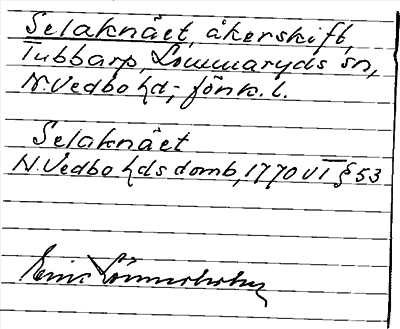 Selaknäet, åkerskift,
Tubbarp, Lommaryds sn,
N. Vedbo hd; jönk. l.
Selaknäet
N. Vedbo hds domb, 1770 VI § 53